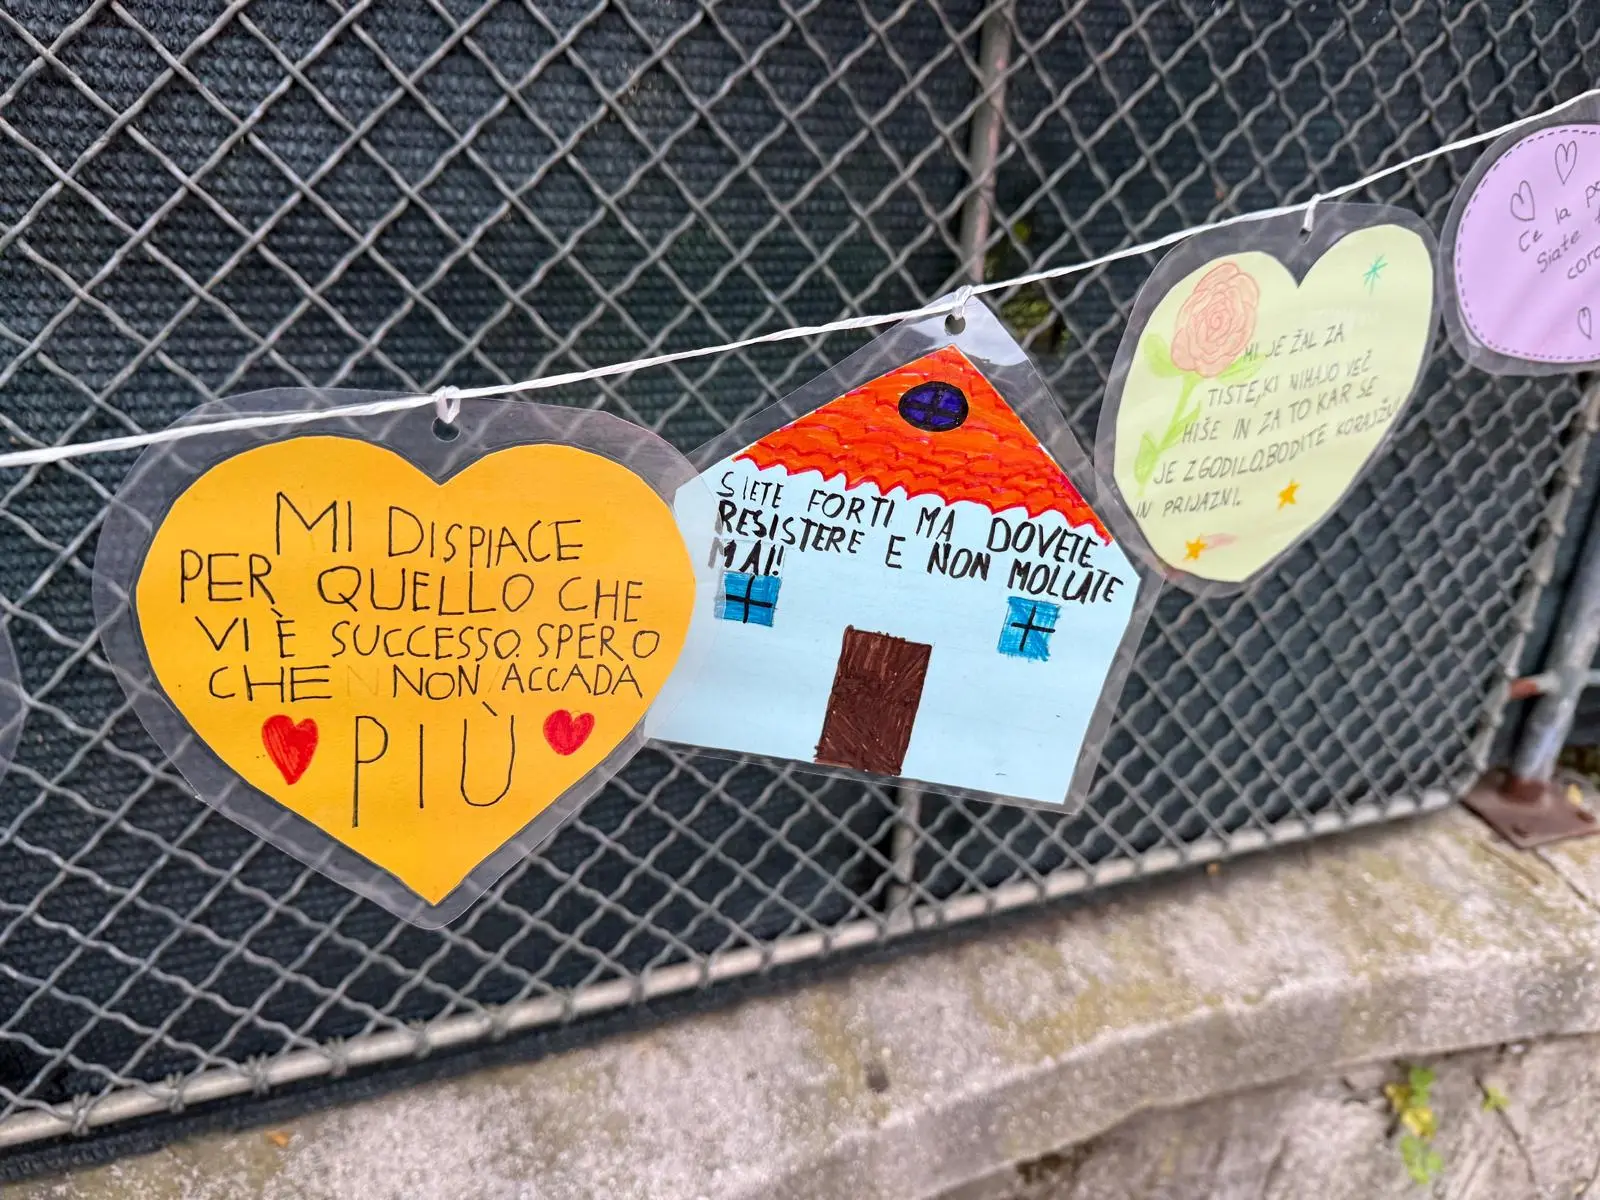 MI DISPIACE
PER QUELLO CHE
VI È SUCCESSO. SPERO
CHE NON ACCADA
PIÙ
SIETE FORTI MA DOVETE
RESISTERE E NON MOLLATE
MAI!
MI JE ŽAL ZA
TISTE, KI NIMAJO VEČ
HIŠE IN ZA TO KAR SE
JE ZGODILO. BODITE KORAJŽNI
IN PRIJAZNI.
Ce la
Siate